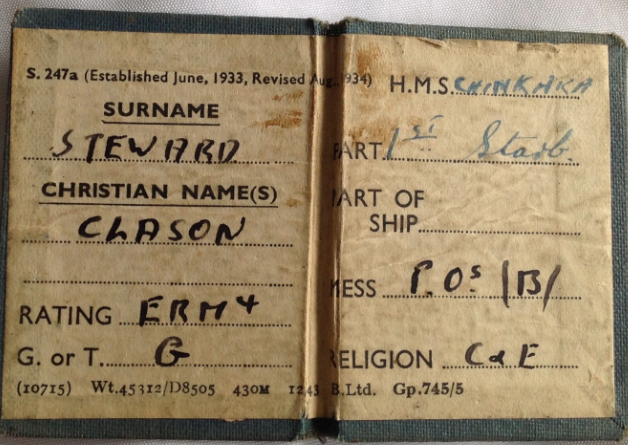 S. 247a (Established June, 1933, Revised Aug., 1934)
SURNAME
STEWARD
CHRISTIAN NAME(S)
CLASON
RATING ERM 4
G. or T. G
H.M.S. CHINKARA
PART 1ST Starb.
PART OF
SHIP
MESS P.Os (B)
RELIGION C of E
(10715) Wt.45312/D8505 430M 1243 B.Ltd. Gp.745/5